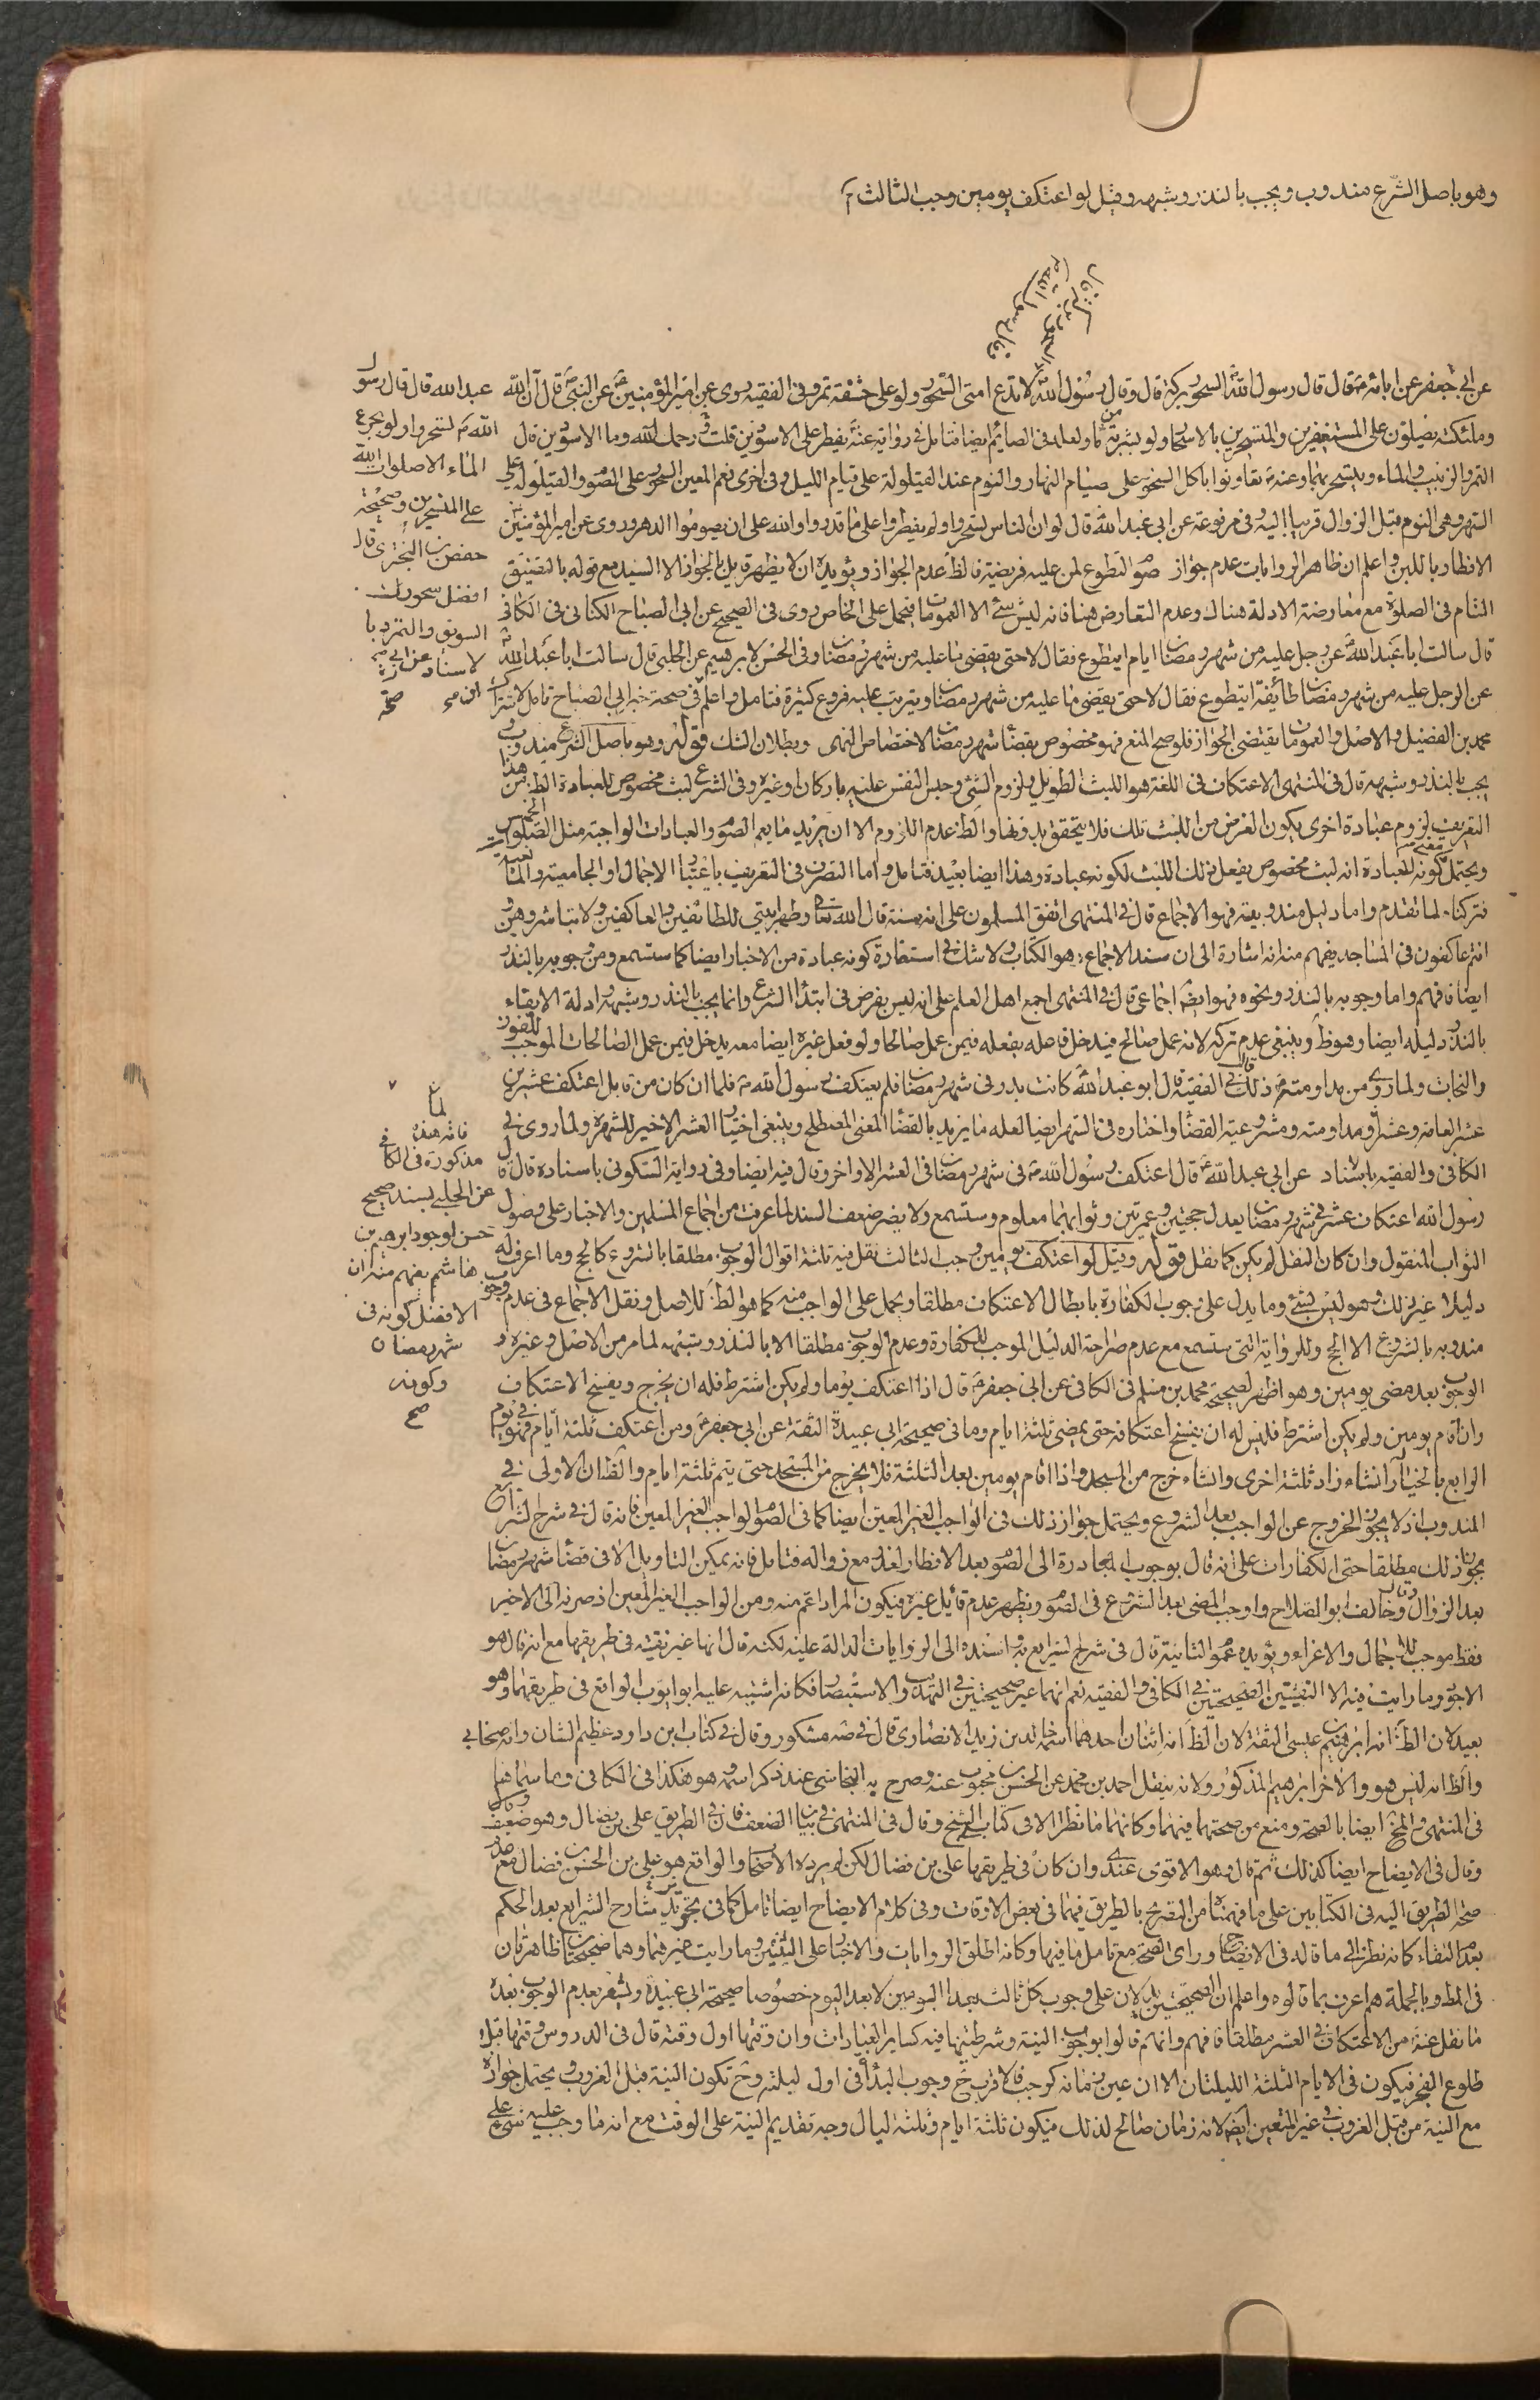 وهو باصل الشرع مندوب ويجب بالنذر وشبهه وقيل لو اعتكف يومين وجب الثالث
عن ابي جعفر عن ابائه قال قال رسول الله السحور بركة قال وقال رسول الله لا تدع امتى السحور ولو على حشفة تمر وفى الفقيه روى عن امير المؤمنين عن النبي قال ان الله
وملئكته يصلون على المستغفرين والمتسحرين بالاسحار ولو بشربة من ماء ولعله فى الصائم ايضا فتامل فى رواية عنه يفطر على الاسودين قلت رحمك الله وما الاسودين قال
التمر والزبيب والماء ويتسحر بهما وعنه تعاونوا باكل السحور على صيام النهار والنوم عند القيلولة على قيام الليل وفى اخرى نعم المعين السحور على الصوم والقيلولة على
وهى النوم قبل الزوال قريبا اليه وفى مرفوعة عن ابي عبد الله قال لو ان الناس تسحروا ولم يفطروا على ما قدروا والله على ان يصوموا الدهر وروى عن امير المؤمنين
الافطار باللبن واعلم ان ظاهر الروايات عدم جواز صوم التطوع لمن عليه فريضة فالظ عدم الجواز ويؤيده ان لا يظهر قايل بالجواز الا السيد مع قوله بالتضيق
التام فى الصلوة مع معارضة الادلة هناك وعدم التعارض هنا فانه ليس شئ الا العمومات فيحمل على الخاص روى فى الصحيح عن ابي الصباح الكنانى فى الكافى
قال سالت ابا عبد الله عن رجل عليه من شهر رمضان ايام ايتطوع فقال لا حتى يقضى ما عليه من شهر رمضان وفى الحسن لابرهيم عن الحلبى قال سالت ابا عبد الله
عن الرجل عليه من شهر رمضان طائفة ايتطوع فقال لا حتى يقضى ما عليه من شهر رمضان ويترتب عليه فروع كثيرة فتامل واعلم فى صحة خبر ابي الصباح تامل لاشتراك
محمد بن الفضيل والاصل والعمومات يقتضى الجواز فلو صح المنع فهو مخصوص بقضاء شهر رمضان لاختصاص النهى وبطلان الشك قوله وهو باصل الشرع مندوب
يجب بالنذر وشبهه قال فى المنتهى الاعتكاف فى اللغة هو اللبث الطويل ولزوم الشئ وحبس النفس عليه بارا كان او غيره وفى الشرع لبث مخصوص للعبادة الظ من هذا
التعريف لزوم عبادة اخرى يكون الغرض من اللبث تلك فلا يتحقق بدونها والظ عدم اللزوم الا ان يريد ما يعم الصوم والعبادات الواجبة مثل الصلوات الخمس
ويحتمل كونه للعبادة انه لبث مخصوص يفعل ذلك اللبث لكونه عبادة وهذا ايضا بعيد فتامل واما التصرف فى التعريف باعتبار الاجمال او الجامعية والمانعية
فتركناه لما تقدم واما دليل مندوبيته فهو الاجماع قال فى المنتهى اتفق المسلمون على انه سنة قال الله تعالى وطهر بيتي للطائفين والعاكفين ولا تباشروهن و
انتم عاكفون فى المساجد يفهم منه انه اشارة الى ان سند الاجماع هو الكتاب ولا شك فى استفادة كونه عبادة من الاخبار ايضا كما ستسمع ومن وجوبه بالنذر
ايضا فافهم واما وجوبه بالنذر ونحوه فهو ايضا اجماعى قال فى المنتهى اجمع اهل العلم على انه ليس بفرض فى ابتداء الشرع وانما يجب بالنذر وشبهه ادلة الايفاء
بالنذر دليله ايضا وهو ظ وينبغى عدم تركه لانه عمل صالح فيدخل فاعله بفعله فيمن عمل صالحا ولو فعل غيره ايضا معه يدخل فيمن عمل الصالحات الموجب للفوز
والنجات ولما روى من مداومته ذلك فى الفقيه قال ابو عبد الله كانت بدر فى شهر رمضان فلم يعتكف رسول الله فلما ان كان من قابل اعتكف عشرين
عشرا لعامه وعشرا ومداومته ومشروعية القضاء واختاره فى الشهر ايضا لعله ما يريد بالقضاء المعنى المصطلح وينبغى اختيار العشر الاخير للشهرة ولما روى فى
الكافى والفقيه باسناد عن ابي عبد الله قال اعتكف رسول الله فى شهر رمضان فى العشر الاواخر وقال فيه ايضا وفى رواية السكونى باسناده قال قال
رسول الله اعتكاف عشر فى شهر رمضان يعدل حجتين وعمرتين وثوابهما معلوم وستسمع ولا يضر ضعف السند لما عرفت من اجماع المسلمين والاخبار على وصول
الثواب المنقول وان كان النقل لم يكن كما نقل قوله وقيل لو اعتكف يومين وجب الثالث نقل فيه ثلثة اقوال الوجوب مطلقا بالشروع كالحج وما اعرف له
دليلا غير ذلك وهو ليس بشئ وما يدل على وجوب الكفارة بابطال الاعتكاف مطلقا ويحمل على الواجب منه كما هو الظ للاصل ونقل الاجماع فى عدم وجوب
مندوبه بالشروع الا الحج وللرواية التى ستسمع مع عدم صراحة الدليل الموجب للكفارة وعدم الوجوب مطلقا الا بالنذر وشبهه لما مر من الاصل وغيره و
الوجوب بعد مضى يومين وهو اظهر لصحيحة محمد بن مسلم فى الكافى عن ابي جعفر قال اذا اعتكف يوما ولم يكن اشترط فله ان يخرج ويفسخ الاعتكاف
وان اقام يومين ولم يكن اشترط فليس له ان يفسخ اعتكافه حتى يمضى ثلثة ايام وما فى صحيحة ابي عبيدة الثقة عن ابي جعفر ومن اعتكف ثلثة ايام فهو فى يوم
الرابع بالخيار ان شاء زاد ثلثة اخرى وان شاء خرج من المسجد واذا اقام يومين بعد الثلثة فلا يخرج من المسجد حتى يتم ثلثة ايام والظ ان الاولى فى
المندوب اذ لا يجوز الخروج عن الواجب بعد الشروع ويحتمل جواز ذلك فى الواجب الغير المعين ايضا كما فى الصوم الواجب الغير المعين فانه قال فى شرح الشرايع
بجواز ذلك مطلقا حتى الكفارات على انه قال بوجوب المبادرة الى الصوم بعد الافطار لعذر مع زواله فتامل فانه يمكن التاويل الا فى قضاء شهر رمضان
بعد الزوال وقال وخالف ابو الصلاح واوجب المضى بعد الشروع فى الصوم ويظهر عدم قايل غيره فيكون المراد اعم منه ومن الواجب الغير المعين اذ صرفه الى الاخير
فقط موجب للاجمال والاغراء ويؤيده عموم الثانية قال فى شرح الشرايع به واسنده الى الروايات الدالة عليه لكنه قال انها غير نقية فى طريقها مع انه قال هو
الاجود وما رايت فيه الا النقيتين الصحيحتين فى الكافى والفقيه نعم انهما غير صحيحتين فى التهذيب والاستبصار فكانه اشتبه عليه ابو ايوب الواقع فى طريقهما وهو
بعيد لان الظ انه ابرهيم عيسى الثقة لان الظ انه اثنان احدهما اسمه خالد بن زيد الانصارى قال فى صه مشكور وقال فى كتاب ابن داود عظيم الشان وانه صحابي
والظ انه ليس هو والاخر ابرهيم المذكور ولانه ينقل احمد بن محمد عن الحسن بن محبوب عنه وصرح به النجاشى عند ذكر اسمه وهو هكذا فى الكافى وما سماهما
فى المنتهى والمخ ايضا بالصحة ومنع من صحتهما فيهما وكانهما ما نظرا الا فى كتاب الشيخ وقال فى المنتهى فى بيان الضعف فان فى الطريق على بن فضال وهو ضعيف
وقال فى الايضاح ايضا كذلك ثم قال وهو الاقوى عندى وان كان فى طريقها على بن فضال لكن لم يرده الاصحاب والواقع هو على بن الحسن فضال مع
صحة الطريق اليه فى الكتابين على ما فهمنا من التصريح بالطريق فيهما فى بعض الاوقات وفى كلام الايضاح ايضا تامل كما فى تجويز شارح الشرايع بعد الحكم
بعدم النقاء كانه نظر الى ما قاله فى الايضاح وراى الصحة مع تامل ما فيها وكانه اطلق الروايات والاخبار على اثنتين وما رايت غيرهما وهما صحيحتان ظاهرتان
فى المط وبالجملة هم اعرف بما قالوه واعلم ان الصحيحتين يدلان على وجوب كل ثالث بعد اليومين لا بعد اليوم خصوصا صحيحة ابي عبيدة ويشعر بعدم الوجوب بعده
ما نقل عنه من الاعتكاف العشر مطلقا فافهم وانهم قالوا بوجوب النية وشرطيتها فيه كسائر العبادات وان وقتها اول وقته قال فى الدروس وقتها قبل
طلوع الفجر فيكون فى الايام الثلثة الليلتان الا ان عين زمانه كرجب فالاقرب ح وجوب البدأة فى اول ليلته وح تكون النية قبل الغروب ويحتمل جوازه
مع النية من قبل الغروب فى غير المتعين ايضا لانه زمان صالح لذلك فيكون ثلثة ايام وثلثة ليال وجه تقديم النية على الوقت مع انه ما وجب عليه شئ على
عبد الله قال قال رسول
الله تسحروا ولو بجرع
الماء الا صلوات الله
على المتسحرين وصحيحة
حفص بن البخترى قال
افضل سحوركم
السويق والتمر
فانه هذه
مذكورة فى الكافى
عن الحلبى بسند صحيح
حسن لوجود ابرهيم بن
هاشم يفهم منه ان
الافضل كونه فى
شهر رمضان
وكونه
صح